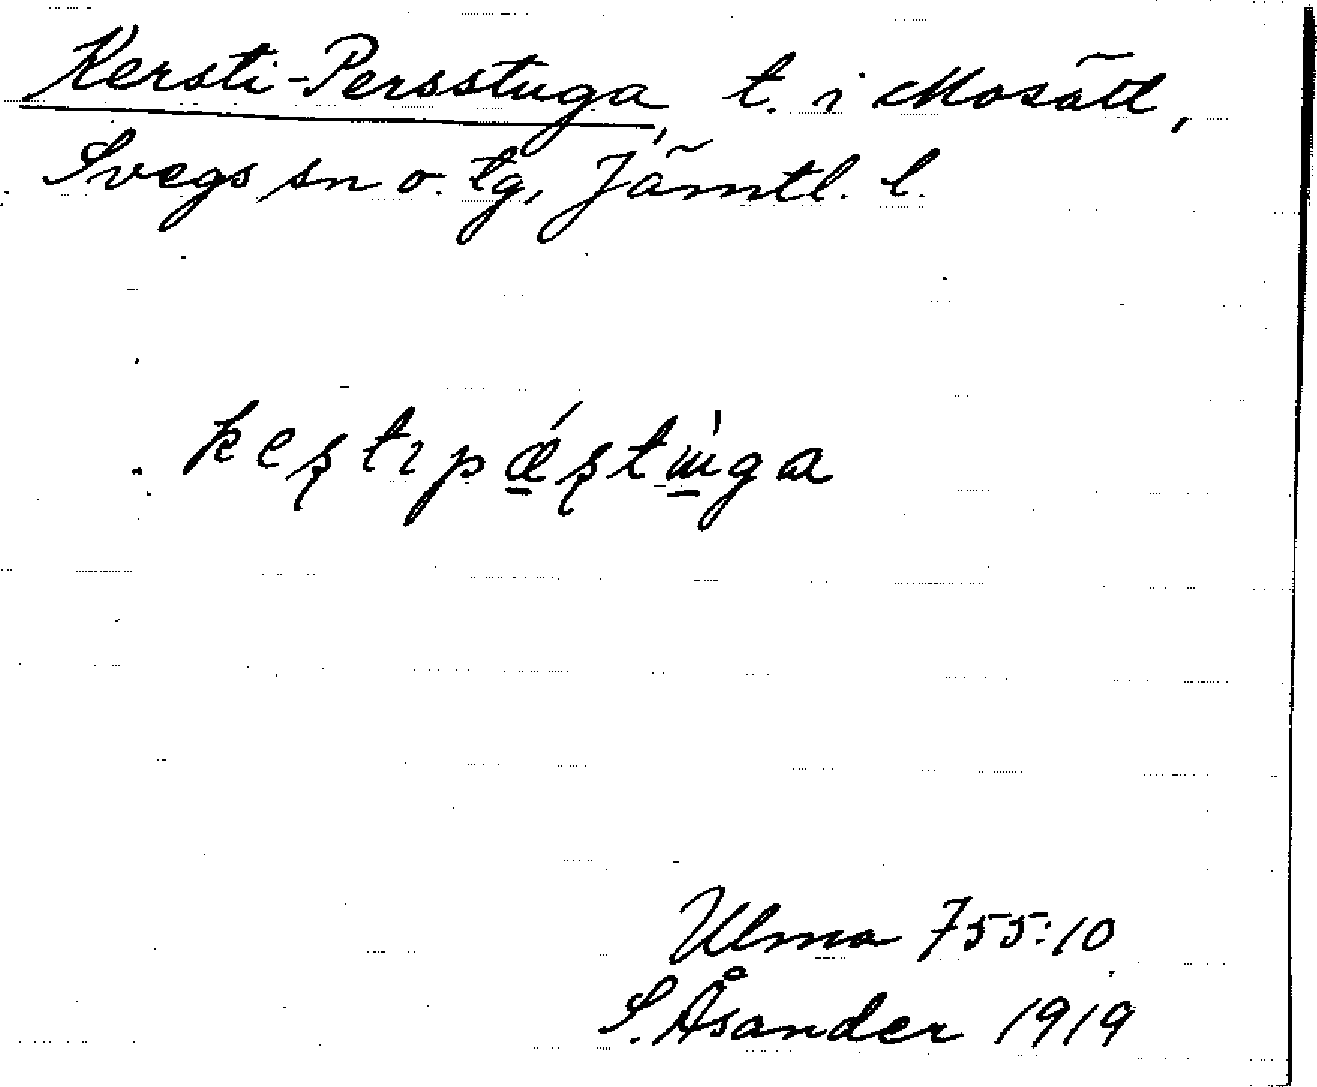 Kersti-Persstuga t. i Mosätt,
Svegs sn o. tg, Jämtl. l.
keʂtɪpǽʂtɯ̀ga
Ulma 755:10
S. Åsander 1919